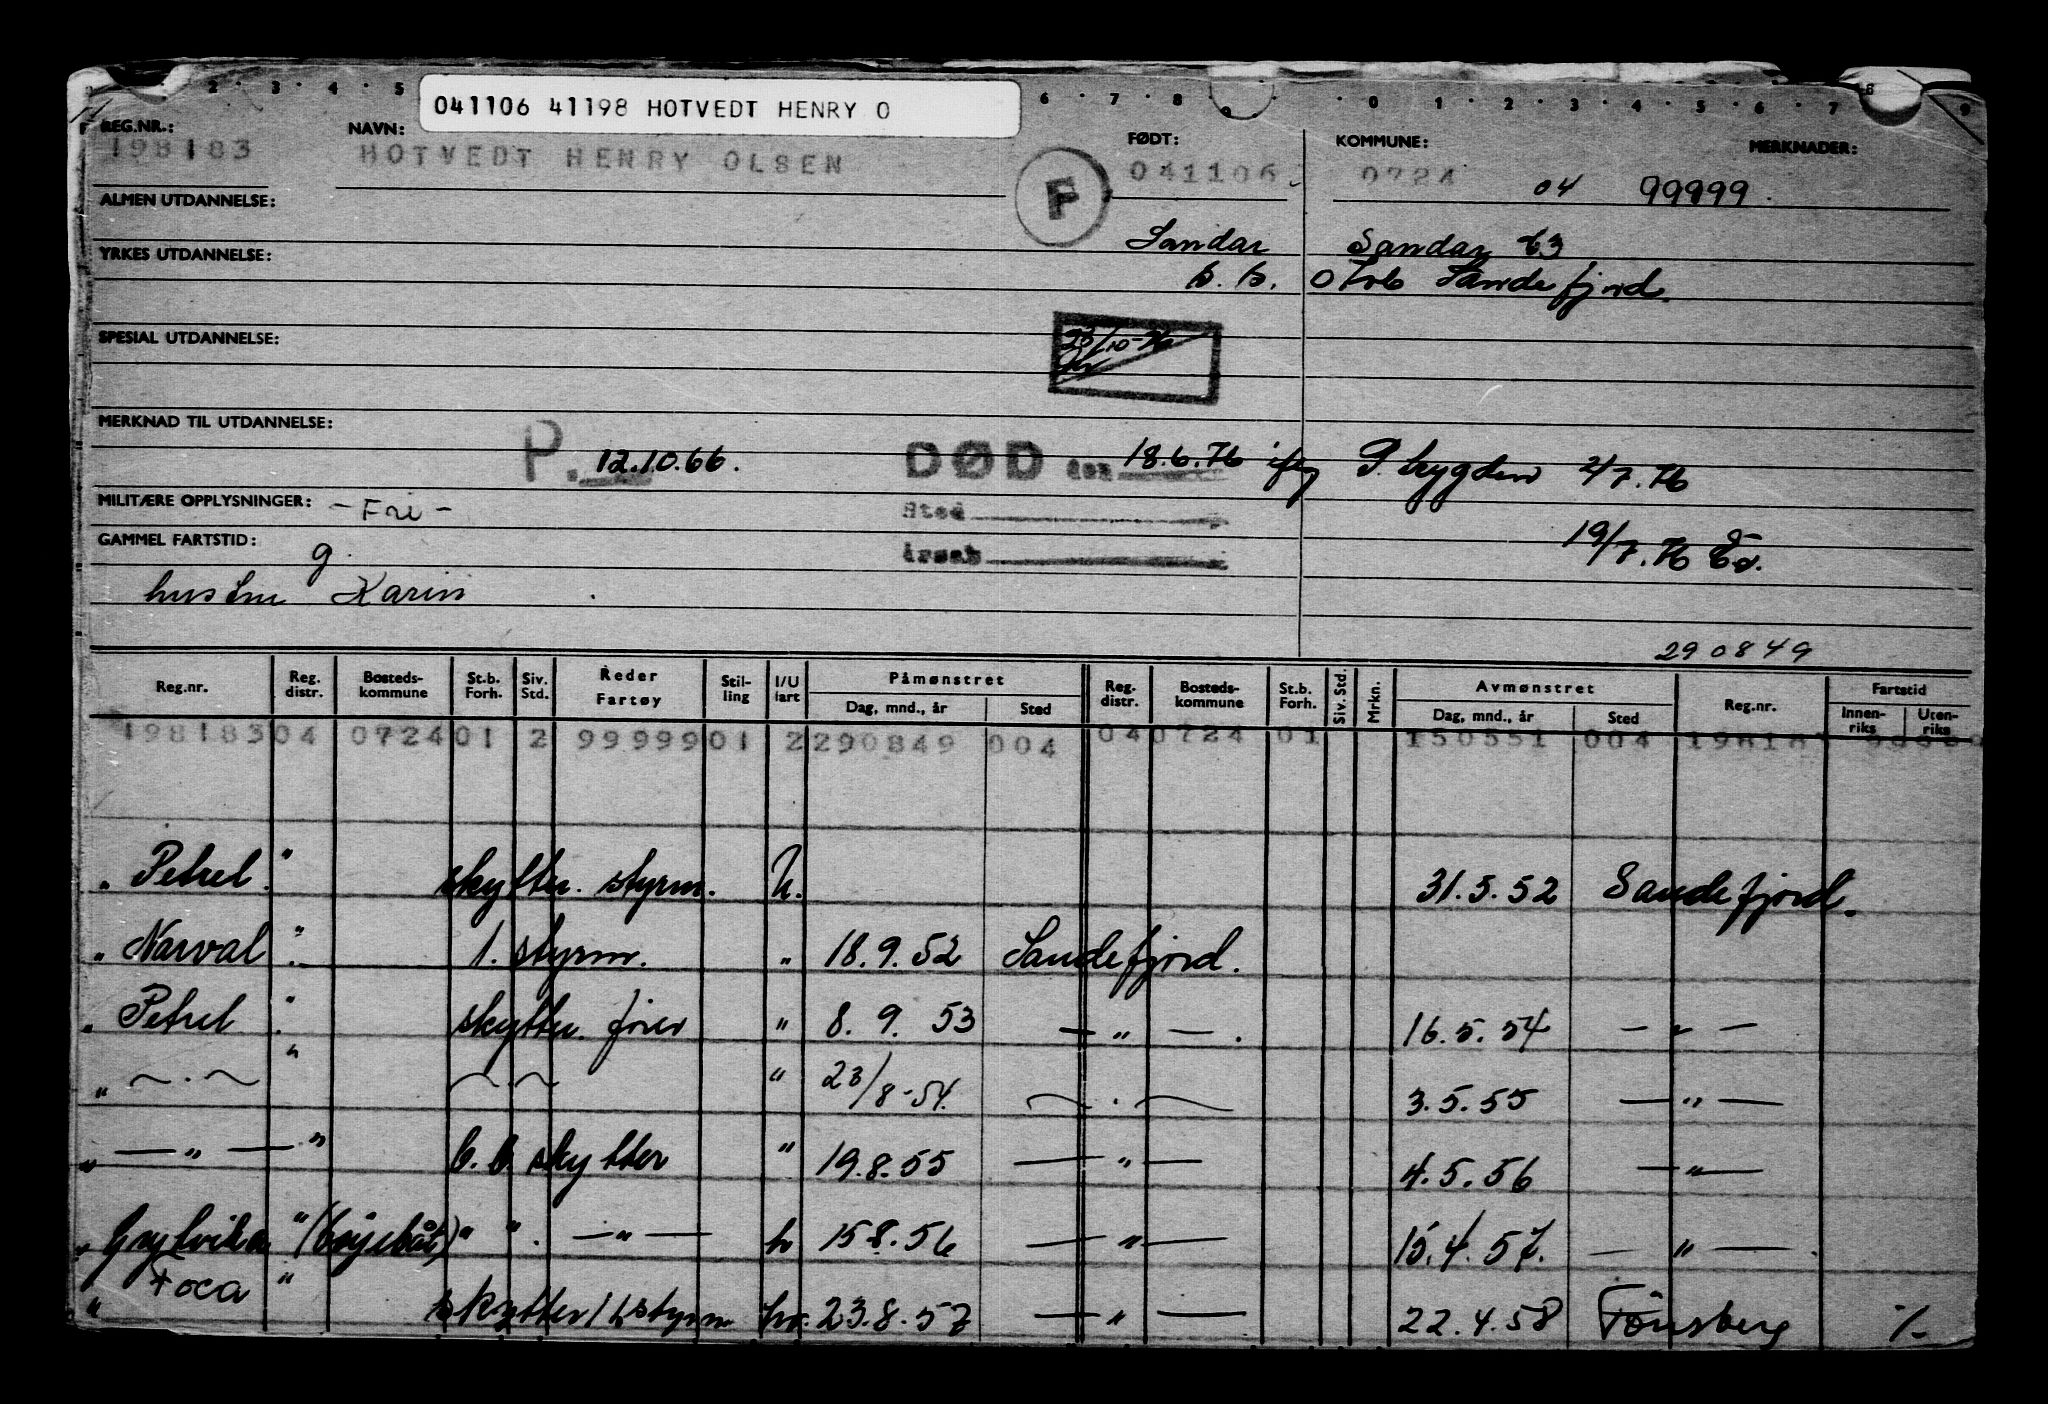 041106 41198 HOTVEDT HENRY O
REG.NR.: NAVN: FØDT: KOMMUNE: MERKNADER:
198183 HOTVEDT HENRY OLSEN F 041106 0724 04 99999
ALMEN UTDANNELSE:
Sandar Sandar 63
YRKES UTDANNELSE:
Sandefjord.
SPESIAL UTDANNELSE:
23/10-76
MERKNAD TIL UTDANNELSE:
P. 12.10.66. DØD den 18.6.76 ifg P. trygden 2/7.76
MILITÆRE OPPLYSNINGER: -Fri- Sted
GAMMEL FARTSTID: g. årsak 19/7.76
hustru Karin
290849
Reg.nr. Reg. distr. Bosteds-kommune St.b. Forh. Siv. Std. Reder Fartøy Stil-ling I/U fart Påmønstret Dag, mnd., år Sted Reg. distr. Bosteds-kommune St.b. Forh. Siv. Std. Mrkn. Avmønstret Dag, mnd., år Sted Reg.nr. Fartstid Innen-riks Uten-riks
198183 04 0724 01 2 99999 01 2 290849 004 04 0724 01 150551 004
" Petrel. " skytter. styrm. U. 31.5.52 Sandefjord.
" Narval " 1. styrm. " 18.9.52 Sandefjord.
" Petrel " skytter. fører " 8.9.53 — " — . 16.5.54 — " —
" ~ . ~ " ~ ~ " 23/8-54. ~ . ~ 3.5.55 — " —
" — " — " b.b skytter " 19.8.55 — " — 4.5.56 — " —
" Grytviken " (bøyebåt) " " . — " — h 15.8.56 — " — 15.4.57. — " — .
" Foca " skytter/1 styrm hv. 23.8.57 — " — 22.4.58 Tønsberg %